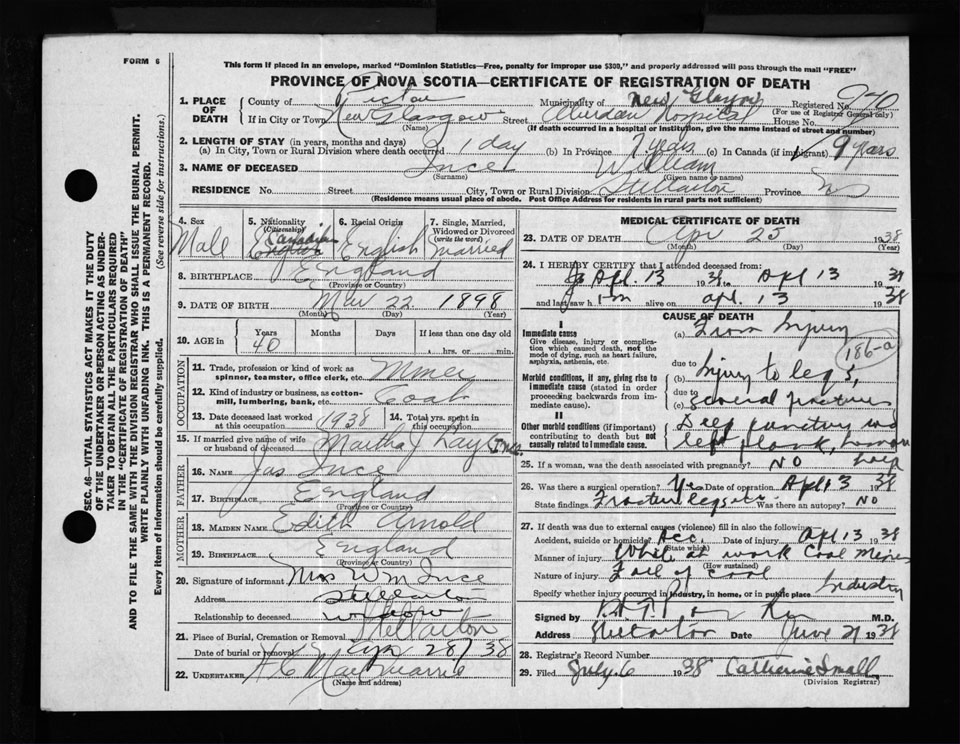 FORM 6
This form if placed in an envelope, marked "Dominion Statistics—Free, penalty for improper use $300," and properly addressed will pass through the mail "FREE"
PROVINCE OF NOVA SCOTIA—CERTIFICATE OF REGISTRATION OF DEATH
1. PLACE OF DEATH
County of Pictou Municipality of New Glasgow Registered No. 940
(For use of Registrar General only)
If in City or Town New Glasgow Street Aberdeen Hospital House No.
(Name) (If death occurred in a hospital or institution, give the name instead of street and number)
2. LENGTH OF STAY (in years, months and days)
(a) In City, Town or Rural Division where death occurred 1 day (b) In Province 7 years (c) In Canada (if immigrant) 9 years
3. NAME OF DECEASED Ince William
(Surname) (Given name or names)
RESIDENCE No. Street City, Town or Rural Division Stellarton Province NS
(Residence means usual place of abode. Post Office Address for residents in rural parts not sufficient)
4. Sex
Male
5. Nationality
(Citizenship)
Canadian
English
6. Racial Origin
English
7. Single, Married, Widowed or Divorced
(write the word)
married
8. BIRTHPLACE England
(Province or Country)
9. DATE OF BIRTH 22 1898
(Month) (Day) (Year)
10. AGE in
Years Months Days If less than one day old
40 hrs. or min.
OCCUPATION
11. Trade, profession or kind of work as spinner, teamster, office clerk, etc. Miner
12. Kind of industry or business, as cotton-mill, lumbering, bank, etc. Coal
13. Date deceased last worked at this occupation 1938
14. Total yrs. spent in this occupation
15. If married give name of wife or husband of deceased Martha J Ince
FATHER
16. NAME Jas Ince
17. BIRTHPLACE England
(Province or Country)
MOTHER
18. MAIDEN NAME Edith Arnold
19. BIRTHPLACE England
(Province or Country)
20. Signature of informant Mrs Wm Ince
Address Stellarton
Relationship to deceased widow
21. Place of Burial, Cremation or Removal Stellarton
Date of burial or removal Apr 28/38
22. UNDERTAKER MacQuarrie
(Name and address)
MEDICAL CERTIFICATE OF DEATH
23. DATE OF DEATH Apr 25 1938
(Month) (Day) (Year)
24. I HEREBY CERTIFY that I attended deceased from:
Apl. 13 1938 to Apl 13 1938
and last saw him alive on apl. 13 1938
CAUSE OF DEATH
I
Immediate cause
Give disease, injury or complication which caused death, not the mode of dying, such as heart failure, asphyxia, asthenia, etc.
(a) From Injury
186-a
due to
Morbid conditions, if any, giving rise to immediate cause (stated in order proceeding backwards from immediate cause).
(b) Injury to legs,
due to
(c) several fractures
II
Other morbid conditions (if important) contributing to death but not causally related to immediate cause.
Deep puncture
left
25. If a woman, was the death associated with pregnancy? NO
26. Was there a surgical operation? Yes Date of operation Apl 13 38
State findings Fracture legs Was there an autopsy? NO
27. If death was due to external causes (violence) fill in also the following:
Accident, suicide or homicide? Acc. Date of injury Apl 13 1938
(State which)
Manner of injury While at work Coal Mines
(How sustained)
Nature of injury Fall of coal
Specify whether injury occurred in industry, in home, or in public place Industry
Signed by M.D.
Address Stellarton Date June 21 1938
28. Registrar's Record Number
29. Filed July 6 1938 Catherine Small
(Division Registrar)
SEC. 46—VITAL STATISTICS ACT MAKES IT THE DUTY OF THE UNDERTAKER OR PERSON ACTING AS UNDERTAKER TO OBTAIN ALL THE PARTICULARS REQUIRED IN THE "CERTIFICATE OF REGISTRATION OF DEATH" AND TO FILE THE SAME WITH THE DIVISION REGISTRAR WHO SHALL ISSUE THE BURIAL PERMIT.
WRITE PLAINLY WITH UNFADING INK. THIS IS A PERMANENT RECORD.
Every item of information should be carefully supplied. (See reverse side for instructions.)